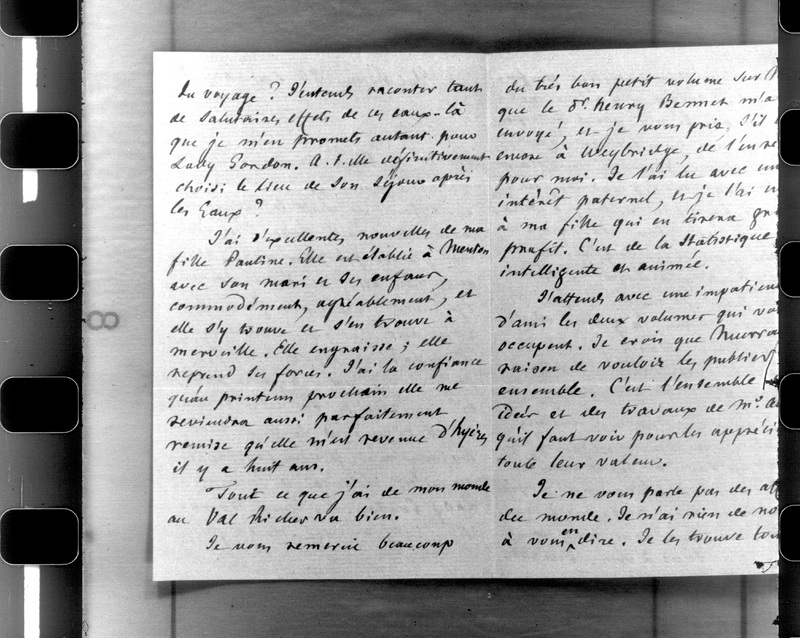 du voyage ? J'entends raconter tant
de salutaires effets de ces eaux-là
que je m'en promets autant pour
Lady Gordon. A-t-elle définitivement
choisi le lieu de son séjour après
les Eaux ?
J'ai d'excellentes nouvelles de ma
fille Pauline. Elle est établie à Menton
avec son mari et ses enfans,
commodément, agréablement, et
elle s'y trouve et s'en trouve à
merveille. Elle engraisse ; elle
reprend ses forces. J'ai la confiance
qu'au printems prochain elle me
reviendra aussi parfaitement
remise qu'elle m'est revenue d'hyères
il y a huit ans.
Tout ce que j'ai de mon monde
au Val Richer va bien.
Je vous remercie beaucoup
du très bon petit volume sur
que le Dr. henry Bennet m'a
envoyé, et je vous prie, s'il
encore à Weybridge, de l'en re
pour moi. Je l'ai lu avec un
intérêt paternel, et je l'ai en
à ma fille qui en tirera
profit. C'est de la Statistique
intelligente et animée.
J'attends avec une impatien
d'ami les deux volumes qui vo
occupent. Je crois que Murra
raison de vouloir les publier
ensemble. C'est l'ensemble
idées et des travaux de Mr. A
qu'il faut voir pour les appréci
toute leur valeur.
Je ne vous parle pas des aff
du monde. Je n'ai rien de no
à vous en dire. Je les trouve tou